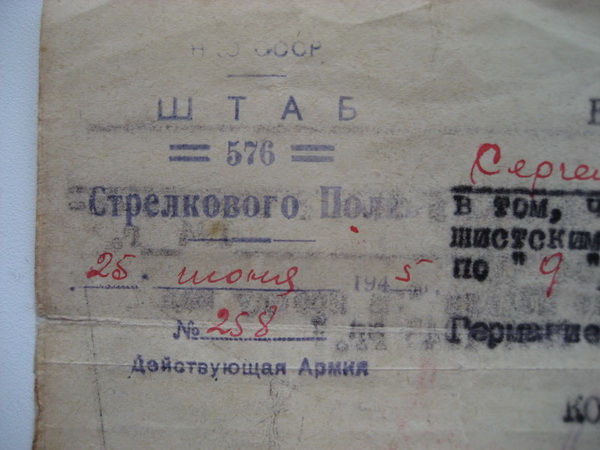 НКО СССР
ШТАБ
= 576 =
Стрелкового Полка
25. июня 1945
№ 258
Действующая Армия
Серге
в том, ч
шистским
по "9"
Германие
КО